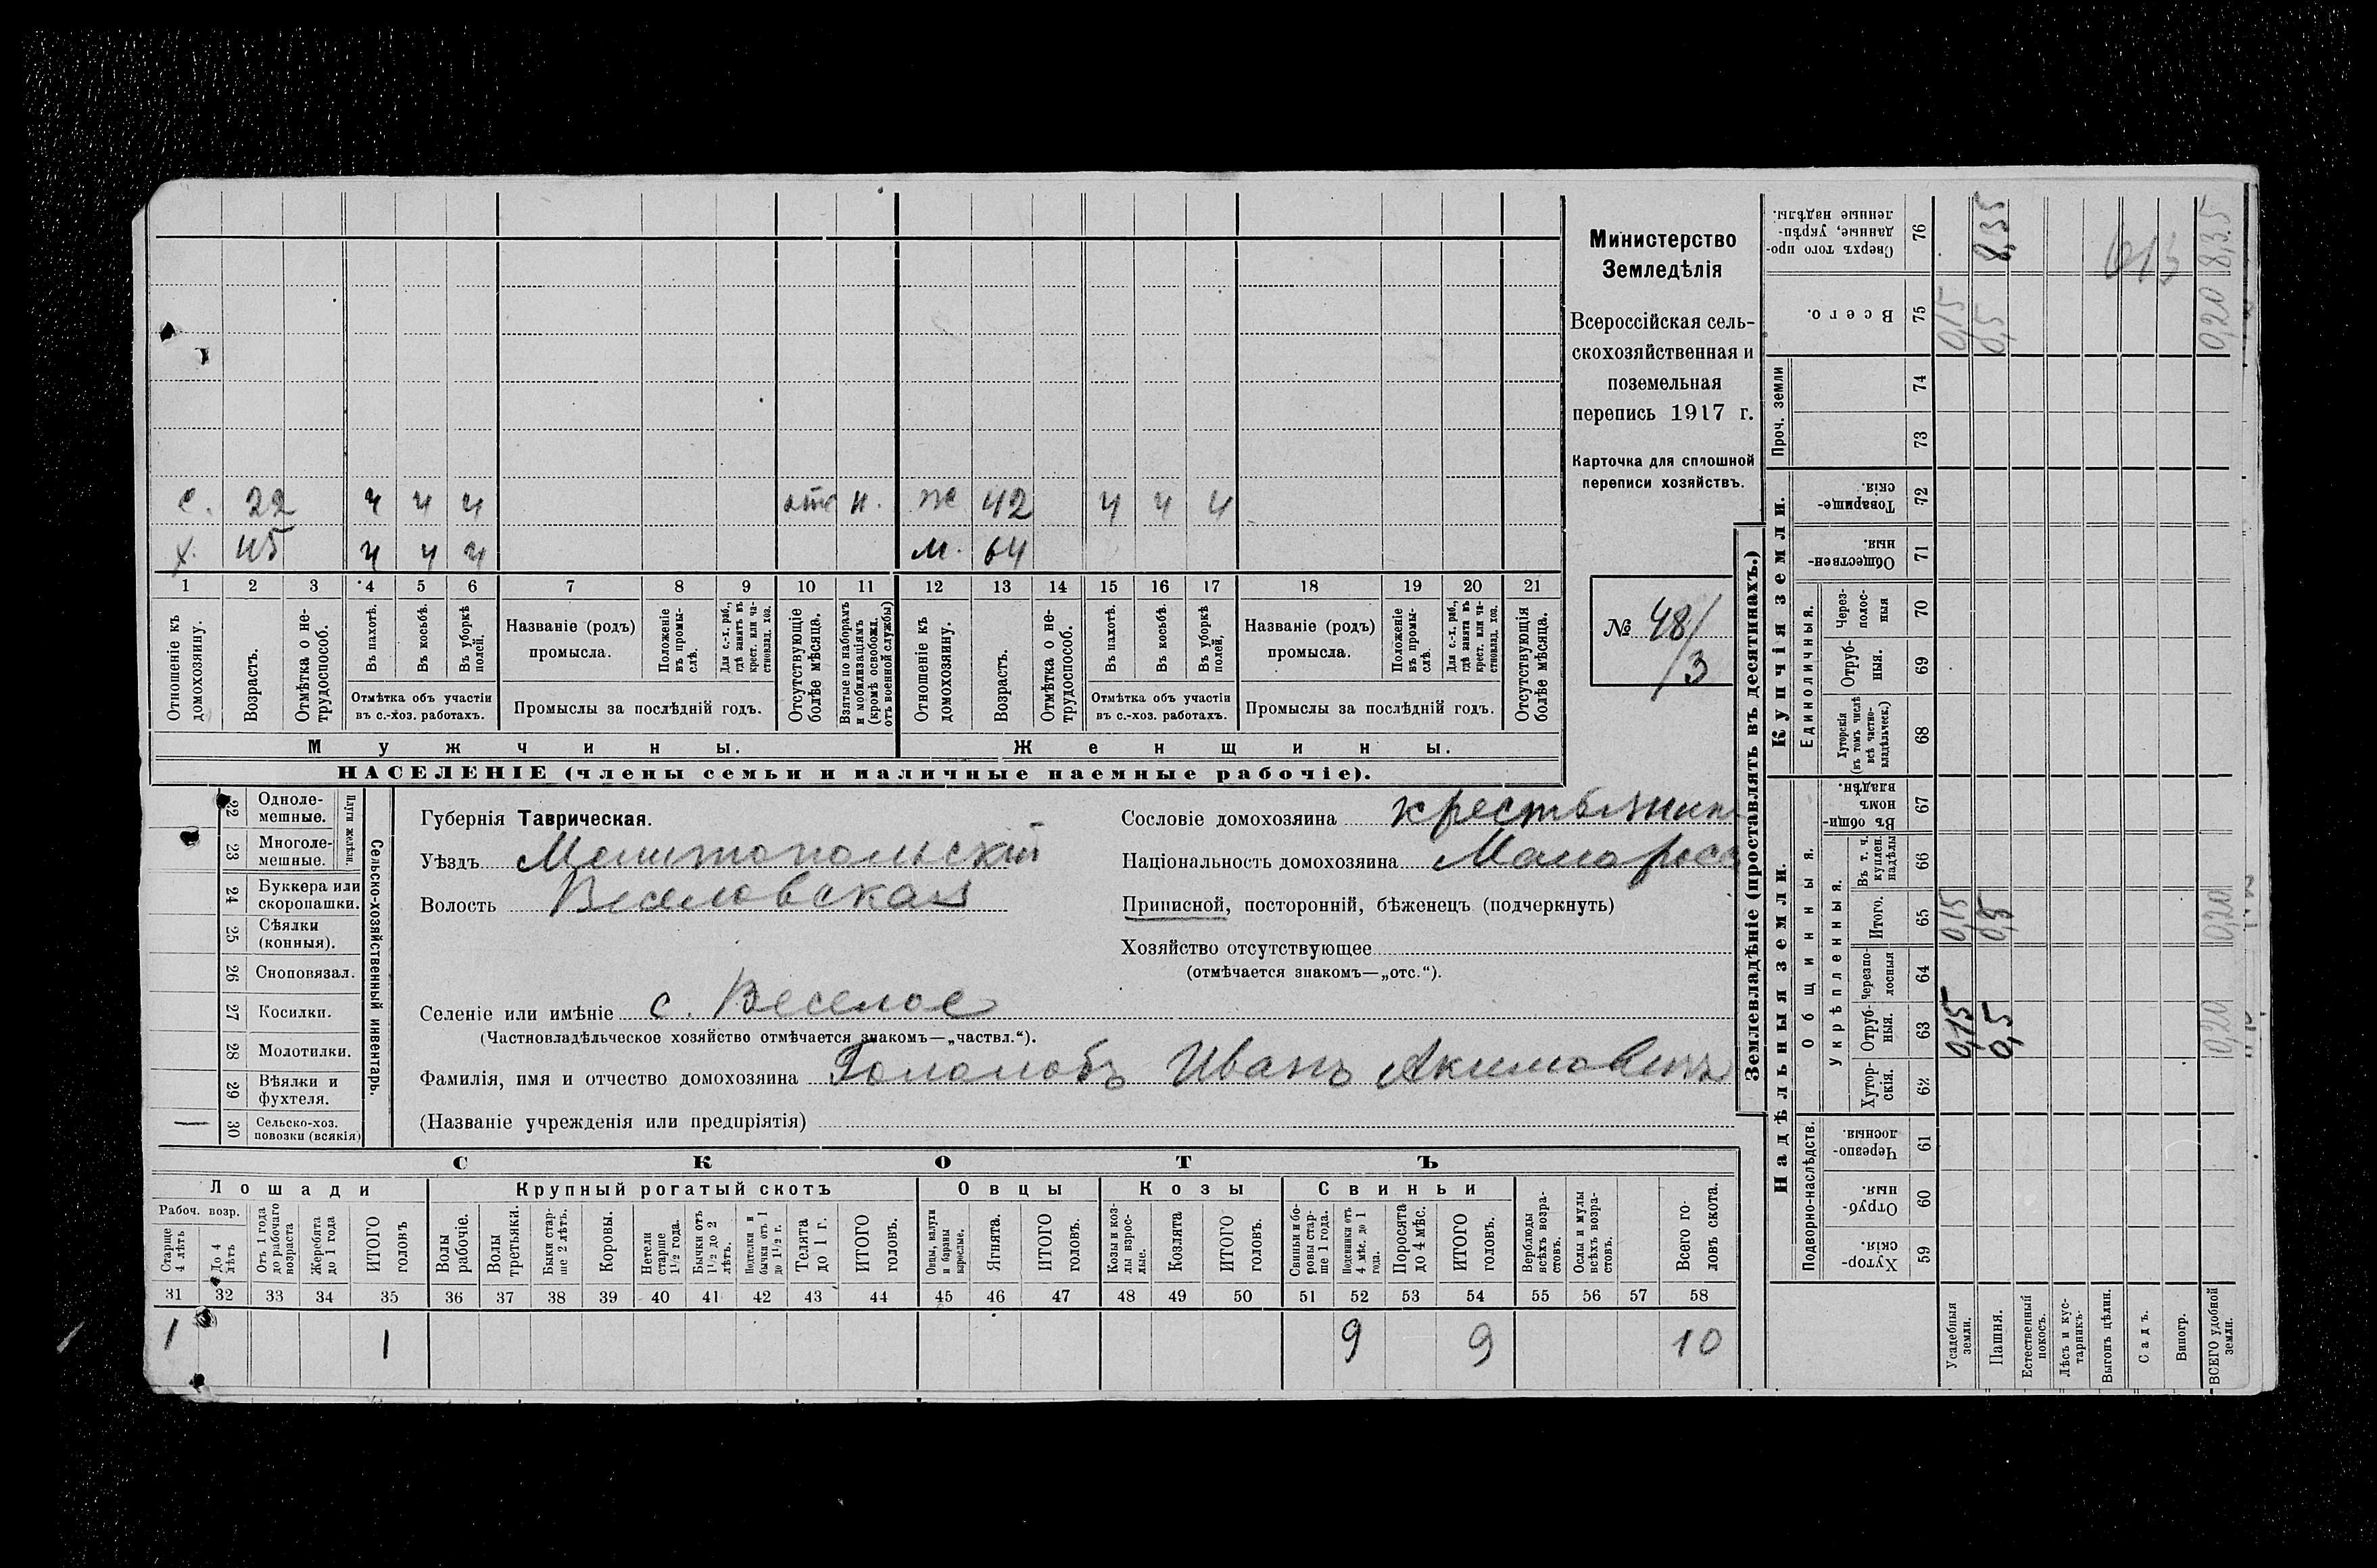 Министерство
Земледѣлія
Всероссійская сель-
скохозяйственная и
поземельная
перепись 1917 г.
Карточка для сплошной
переписи хозяйствъ.
№ 48/3
с. 22 ч ч ч отс н. ж 42 ч ч ч
х. 45 ч ч ч м. 64
1 2 3 4 5 6 7 8 9 10 11 12 13 14 15 16 17 18 19 20 21
Отношеніе къ домохозяину.
Возрастъ.
Отмѣтка о не-трудоспособ.
Въ пахотѣ.
Въ косьбѣ.
Въ уборкѣ полей.
Отмѣтка объ участіи
въ с.-хоз. работахъ.
Названіе (родъ)
промысла.
Положеніе въ промы-слѣ.
Для с.-х. раб., гдѣ занятъ въ крест. или ча-ствовлад. хоз.
Промыслы за послѣдній годъ.
Отсутствующіе болѣе мѣсяца.
Взятые по наборамъ и мобилизаціямъ (кромѣ освобожд. отъ военной службы)
Отношеніе къ домохозяину.
Возрастъ.
Отмѣтка о не-трудоспособ.
Въ пахотѣ.
Въ косьбѣ.
Въ уборкѣ полей,
Отмѣтка объ участіи
въ с.-хоз. работахъ.
Названіе (родъ)
промысла.
Положеніе въ промы-слѣ.
Для с.-х. раб., гдѣ занята въ крест. или ча-ствовлад. хоз.
Промыслы за послѣдній годъ.
Отсутствующія болѣе мѣсяца.
Мужчины. Женщины.
НАСЕЛЕНІЕ (члены семьи и наличные наемные рабочіе).
Сельско-хозяйственный инвентарь.
Плуги желѣзн.
22 Одноле-мешные.
23 Многоле-мешные.
24 Буккера или скоропашки.
25 Сѣялки (конныя).
26 Сноповязал.
27 Косилки.
28 Молотилки.
29 Вѣялки и фухтеля.
— 30 Сельско-хоз. повозки (всякія)
Губернія Таврическая.
Уѣздъ Мелитопольскій
Волость Веселовская
Селеніе или имѣніе с. Веселое
(Частновладѣльческое хозяйство отмѣчается знакомъ—„частвл.“).
Фамилія, имя и отчество домохозяина Гололобъ Иванъ Акимовичъ
(Названіе учрежденія или предпріятія)
Сословіе домохозяина крестьянинъ
Національность домохозяина Малоросс
Приписной, посторонній, бѣженецъ (подчеркнуть)
Хозяйство отсутствующее
(отмѣчается знакомъ—„отс.“).
СКОТЪ
Лошади Крупный рогатый скотъ Овцы Козы Свиньи
Рабоч. возр.
Старше 4 лѣтъ
До 4 лѣтъ
Отъ 1 года до рабочаго возраста
Жеребята до 1 года
ИТОГО головъ
Волы рабочіе.
Волы третьяки.
Быки стар-ше 2 лѣтъ.
Коровы.
Нетели старше 1½ года.
Бычки отъ 1½ до 2 лѣтъ.
Нетелки и бычки отъ 1 до 1½ г.
Телята до 1 г.
ИТОГО головъ.
Овцы, валухи и бараны взрослые.
Ягнята.
ИТОГО головъ.
Козы и коз-лы взрос-лые.
Козлята
ИТОГО головъ.
Свиньи и бо-ровы стар-ше 1 года.
Подсвинки отъ 4 мѣс. до 1 года.
Поросята до 4 мѣс.
ИТОГО головъ.
Верблюды всѣхъ возра-стовъ.
Ослы и мулы всѣхъ возра-стовъ.
Всего го-ловъ скота.
31 32 33 34 35 36 37 38 39 40 41 42 43 44 45 46 47 48 49 50 51 52 53 54 55 56 57 58
1 1 9 9 10
Землевладѣніе (проставлять въ десятинахъ.)
Надѣльныя земли. Купчія земли. Проч. земли
Подворно-наслѣдств.
Общинныя.
Укрѣпленныя.
Единоличныя.
Хутор-скія. 59
Отруб-ныя. 60
Черезпо-лосныя. 61
Хутор-скія. 62
Отруб-ныя. 63
Черезпо-лосныя 64
Итого. 65
Въ т. ч. куплен. надѣлы 66
Въ общин-номъ владѣн. 67
Хуторскія (въ томъ числѣ всѣ частно-владѣльческ.) 68
Отруб-ныя. 69
Через-полос-ныя 70
Обществен-ныя. 71
Товарище-скія. 72
73
74
Всего. 75
Сверхъ того про-данные, укрѣп-ленные надѣлы. 76
Усадебныя земли. 0,15 0,15 0,15
Пашня. 0,5 0,5 0,5 8,35
Естественный покосъ.
Лѣсъ и кус-тарникъ.
Выгонъ цѣлин.
Садъ.
Виногр.
ВСЕГО удобной земли. 0,20 0,20 0,20 8,35